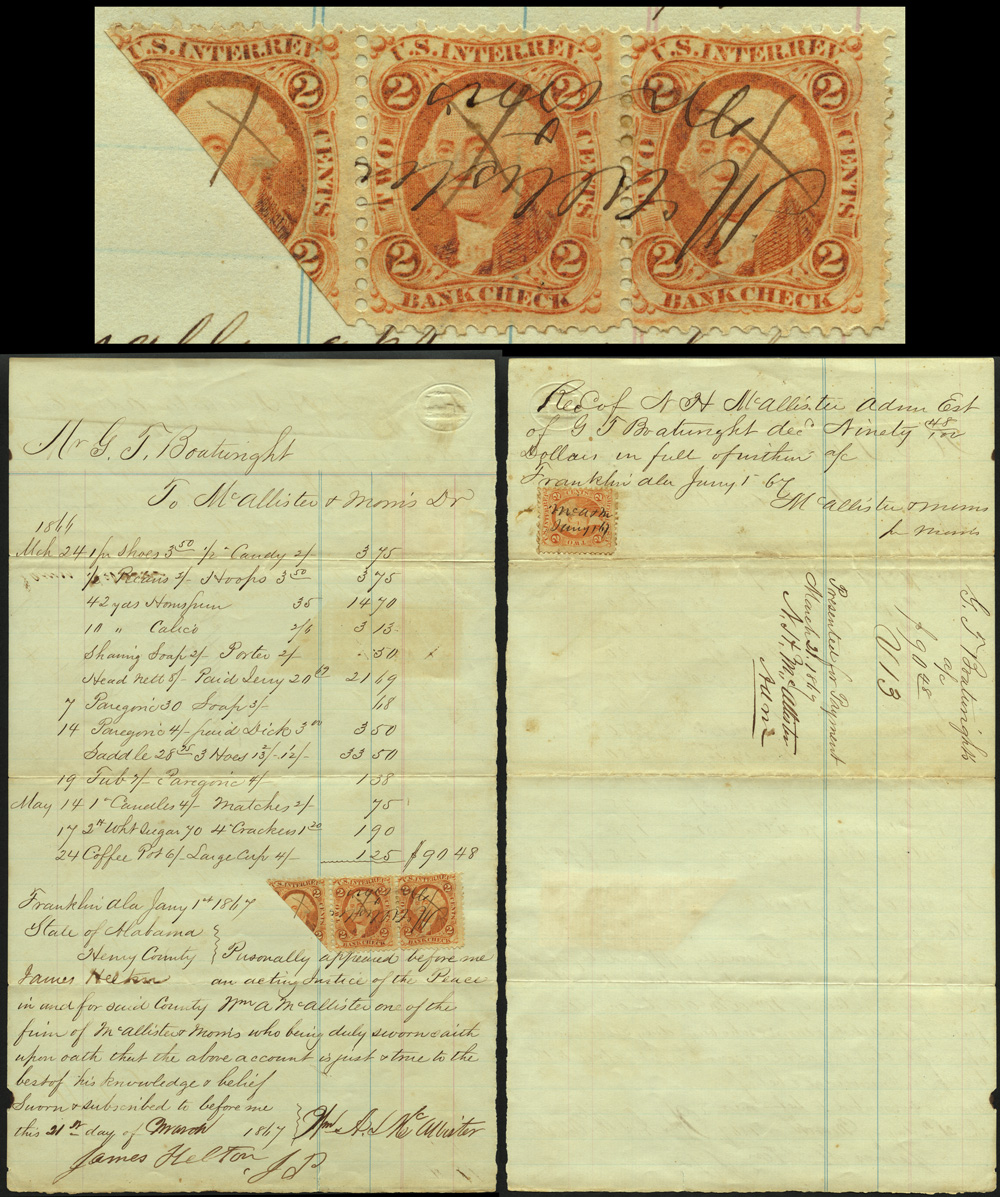 U.S. INTER. REV. U.S. INTER. REV. U.S. INTER. REV.
2 2 2 2 2
CENTS TWO CENTS TWO CENTS
McAllister & Morris
2 2 2 2 2
BANK CHECK BANK CHECK
Mr G. T. Boatwright
To McAllister & Morris Dr
1866
Mch 24 1 pr Shoes 3 50 1/2 " Candy 2/- 3 75
1/2 Pecans 2/- Hoops 3 50 3 75
42 yds Homspun 35 14 70
10 " Calico 2/6 3 13
Shaving Soap 2/- Porter 2/- 50
Head nett 8/- Paid Jerry 20 69 21 69
7 Paregoric 30 Soap 3/- 68
14 Paregoric 4/- paid Dick 3 00 3 50
Saddle 28 25 3 Hoes 33 50
19 Tub 7/- Paregoric 4/- 1 38
May 14 1 " Candles 4/- Matches 2/- 75
17 2 " Wht Sugar 70 4 " Crackers 1 20 1 90
24 Coffee Pot 6/- Large Cup 4/- 1 25 $90 48
U.S. INTER. REV.
BANK CHECK BANK CHECK
Franklin Ala Jany 1st 1867
State of Alabama
Henry County } Personally appeared before me
James Helton an acting Justice of the Peace
in and for said County Wm A McAllister one of the
firm of McAllister & Morris who being duly sworn saith
upon oath that the above account is just & true to the
best of his knowledge & belief
Sworn & subscribed to before me
this 21st day of March 1867 } Wm A. McAllister
James Helton J P
Recd of N H McAllister Admr Est
of G T Boatwright decd Ninety 48/100
Dollars in full of within a/c
Franklin Ala Jany 1 67
McAllister & Morris
pr Morris
Jany 1 67
G. T. Boatwright's
a/c
$90 48
V 13
Presented for Payment
March 21 1867
N. H. McAllister
Admr